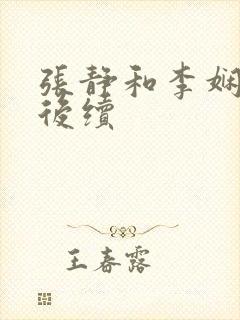 張靜和李娴
後續
王春露